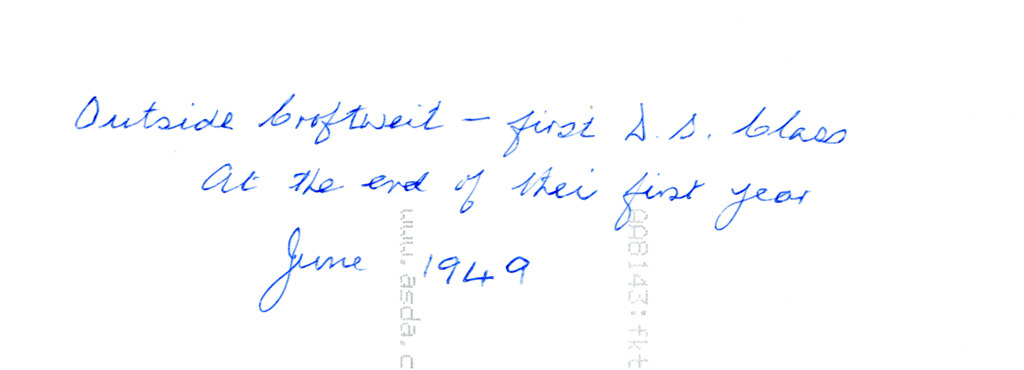 Outside Croftweit – first D.S. Class
At the end of their first year
June 1949
www.asda.c